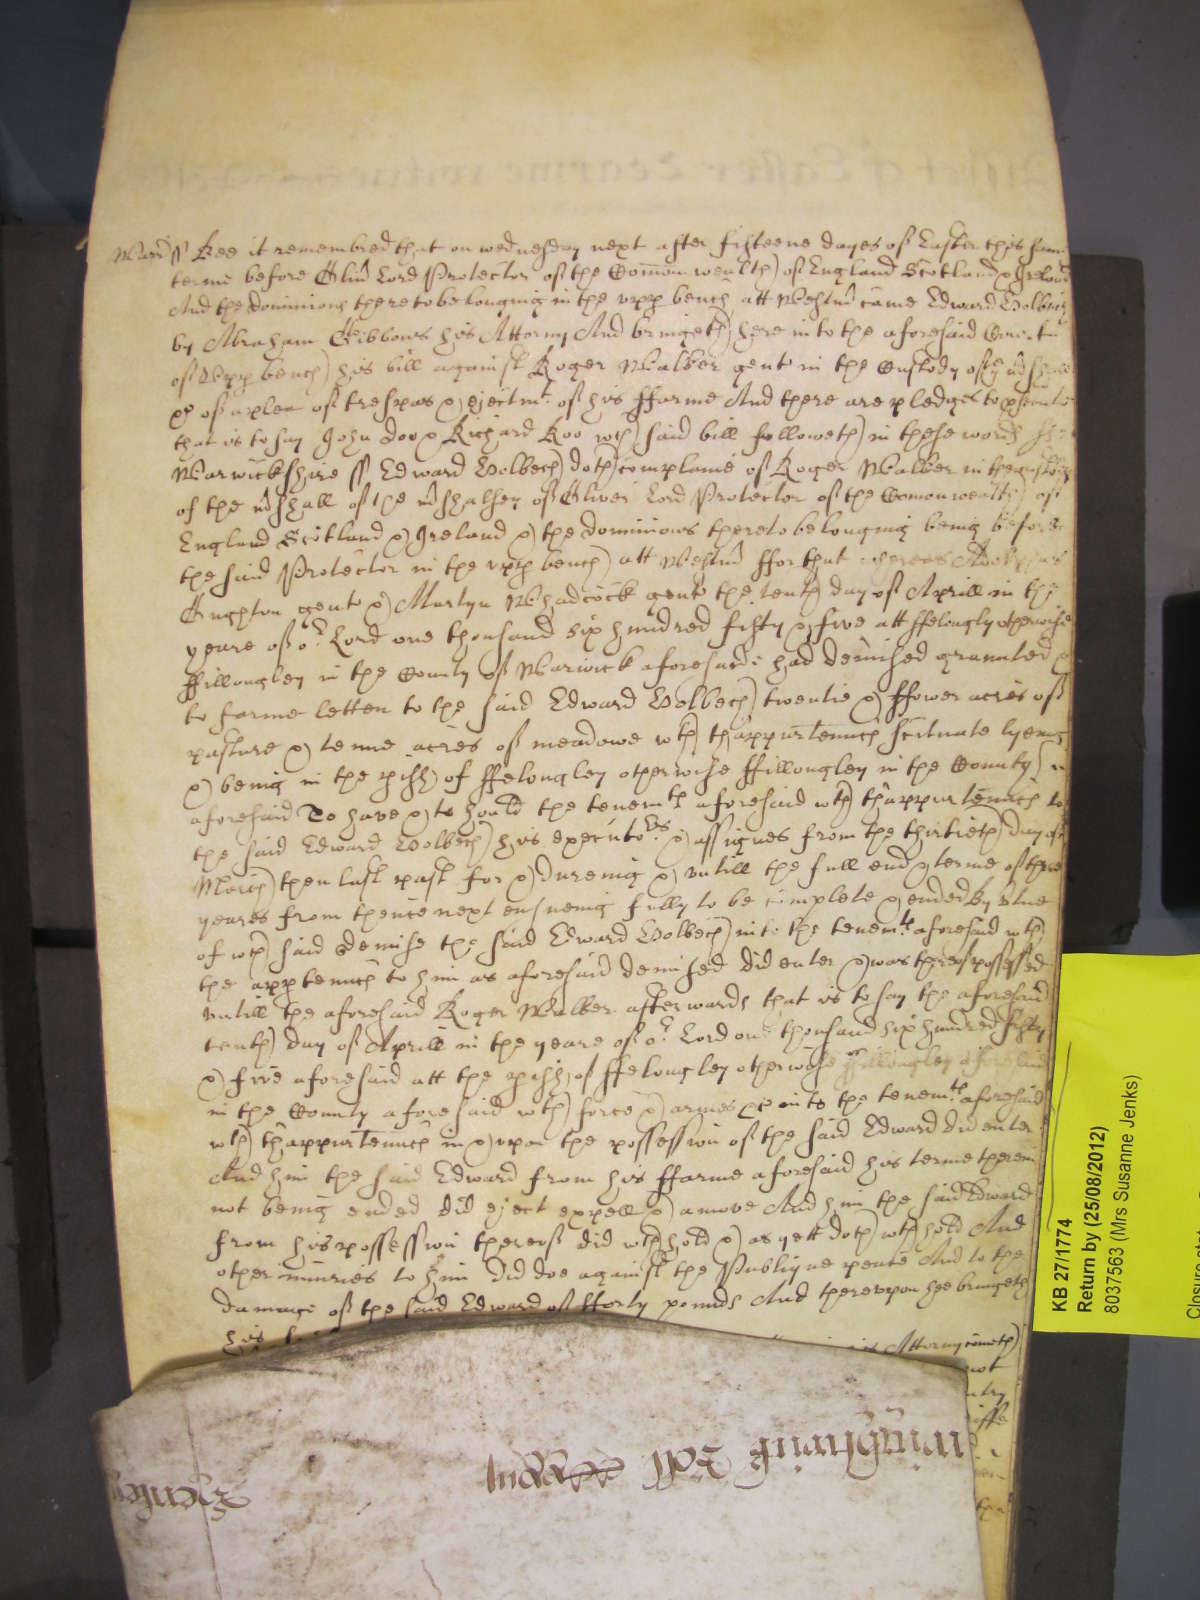 Warr ss Bee it remembred that on wednesday next after fifteene dayes of Easter this same
terme before Oliv Lord Protector of the Comon wealth of England Scotland & Ireland
And the dominions thereto belonging in the upp bench att Westm came Edward Holbech
by Abraham Gibbons his Attorny And bringeth here into the aforesaid Court
of Upp bench his bill against Roger Walker gent in the Custody of the
of a plea of trespas & ejectmt of his ffarme And there are pledges to psecute
that is to say John Doo & Richard Roo wch said bill followeth in these words
Warwickshire ss Edward Holbech doth complaine of Roger Walker in the custody
of the mshall of the mshalsey of Oliver Lord Protector of the Comonwealth of
England Scotland & Ireland & the dominions thereto belonging being before
the said Protector in the upp bench att Westm ffor that whereas
gent & Martyn Whadcock gent the tenth day of Aprill in the
yeare of or Lord one thousand six hundred fifty & five att ffelongly otherwise
ffillongley in the County of Warwick aforesaid had demised graunted &
to farme letten to the said Edward Holbech twentie & ffower acres of
pasture & tenne acres of meadowe wth thappurtennces scituate lyeing
& being in the pish of ffelongley otherwise ffillongley in the County
aforesaid To have & to hould the tenemts aforesaid wth thappurtennces to
the said Edward Holbech his executors & assignes from the thirtieth day of
March then last past for & dureing & untill the full end & terme of three
yeares from thence next ensueing fully to be complete & ended By vtue
of wch said demise the said Edward Holbech into the tenemts aforesaid wth
the apptennces to him as aforesaid demised did enter & was thereof possessed
untill the aforesaid Roger Walker afterwards that is to say the aforesaid
tenth day of Aprill in the yeare of or Lord one thousand six hundred fifty
& five aforesaid att the pish of ffelongley otherwise ffillongley aforesaid
in the County aforesaid wth force & armes &c into the tenemts aforesaid
wth thappurtennces in & upon the possession of the said Edward did enter
And him the said Edward from his ffarme aforesaid his terme therein
not being ended did eject expell & amove And him the said Edward
from his possession thereof did wthhold & as yett doth wthhold And
other iniuries to him did doe against the Publique peace And to the
damage of the said Edward of fforty pounds And thereupon hee bringeth
his
Attorny cometh
not
KB 27/1774
Return by (25/08/2012)
8037563 (Mrs Susanne Jenks)